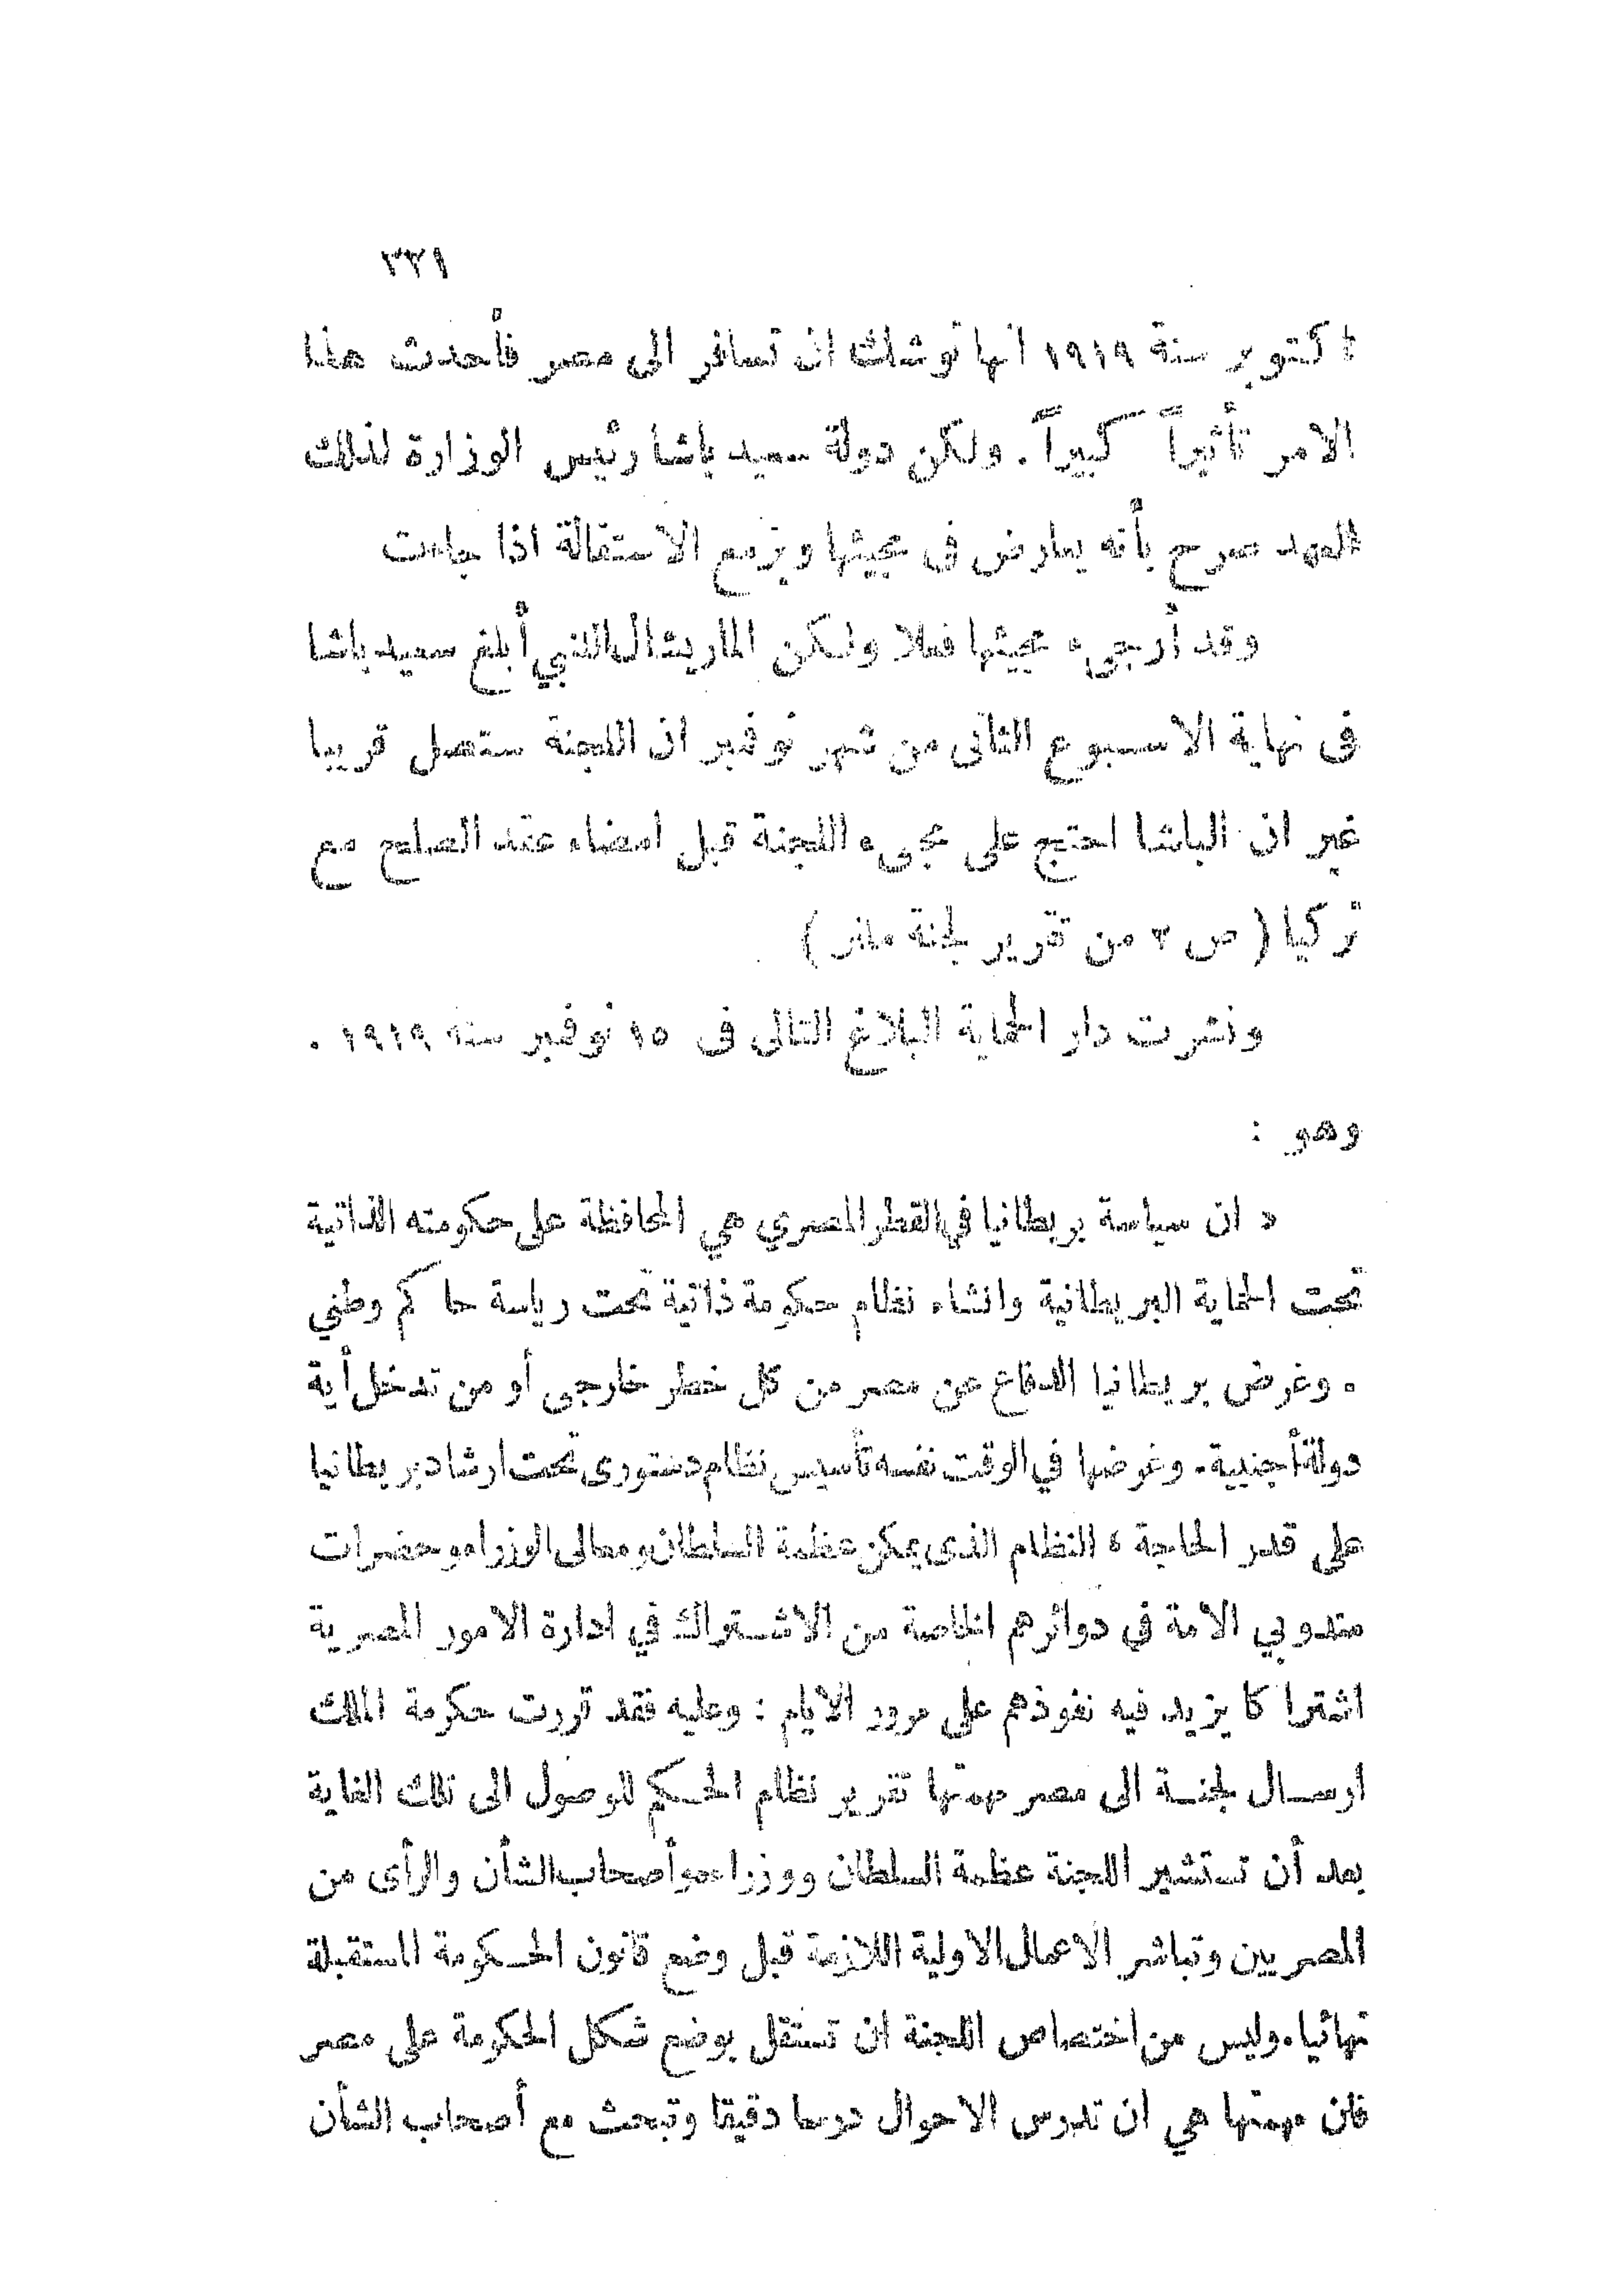 ٣٣٩
اكتوبر سنة ١٩١٩ انها توشك ان تسافر الى مصر فأحدث هذا
الامر تأثيراً كبيراً . ولكن دولة سعيد باشا رئيس الوزارة لذلك
العهد صرح بأنه يعارض فى مجيئها ويزمع الاستقالة اذا جاءت
وقد أرجىء مجيئها فعلا ولكن الماريشال اللنبي أبلغ سعيد باشا
فى نهاية الاسبوع الثانى من شهر نوفمبر ان اللجنة ستصل قريبا
غير ان الباشا احتج على مجىء اللجنة قبل امضاء عقد الصلح مع
تركيا ( ص ٣ من تقرير لجنة ملنر )
ونشرت دار الحماية البلاغ التالى فى ١٥ نوفمبر سنه ١٩١٩ .
وهو :
« ان سياسة بريطانيا في القطر المصري هي المحافظة على حكومته الذاتية
تحت الحماية البريطانية وانشاء نظام حكومة ذاتية تحت رياسة حاكم وطني
. وغرض بريطانيا الدفاع عن مصر من كل خطر خارجى أو من تدخل أية
دولة أجنبية . وغرضها في الوقت نفسه تأسيس نظام دستورى تحت ارشاد بريطانيا
على قدر الحاجة ، النظام الذى يمكن عظمة السلطان ومعالى الوزراء وحضرات
مندوبي الامة في دوائرهم الخاصة من الاشتراك في ادارة الامور المصرية
اشتراكا يزيد فيه نفوذهم على مرور الايام : وعليه فقد قررت حكومة الملك
ارسال لجنة الى مصر مهمتها تقرير نظام الحكم للوصول الى تلك الغاية
بعد أن تستشير اللجنة عظمة السلطان ووزراءه وأصحاب الشأن والرأى من
المصريين وتباشر الاعمال الاولية اللازمة قبل وضع قانون الحكومة المستقبلة
نهائيا . وليس من اختصاص اللجنة ان تستقل بوضع شكل الحكومة على مصر
فان مهمتها هي ان تدرس الاحوال درسا دقيقا وتبحث مع أصحاب الشأن